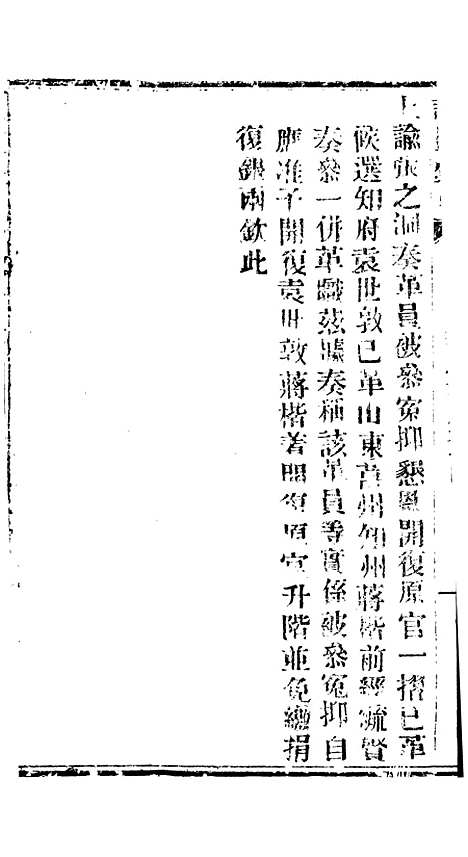 上諭張之洞奏革員被參冤抑懇恩開復原官一摺已革
候選知府袁世敦已革山東莒州知州蔣楷前經毓賢
奏參一併革職茲據奏稱該革員等實係被參冤抑自
應准予開復袁世敦蔣楷著開復原官升階並免繳捐
復銀兩欽此